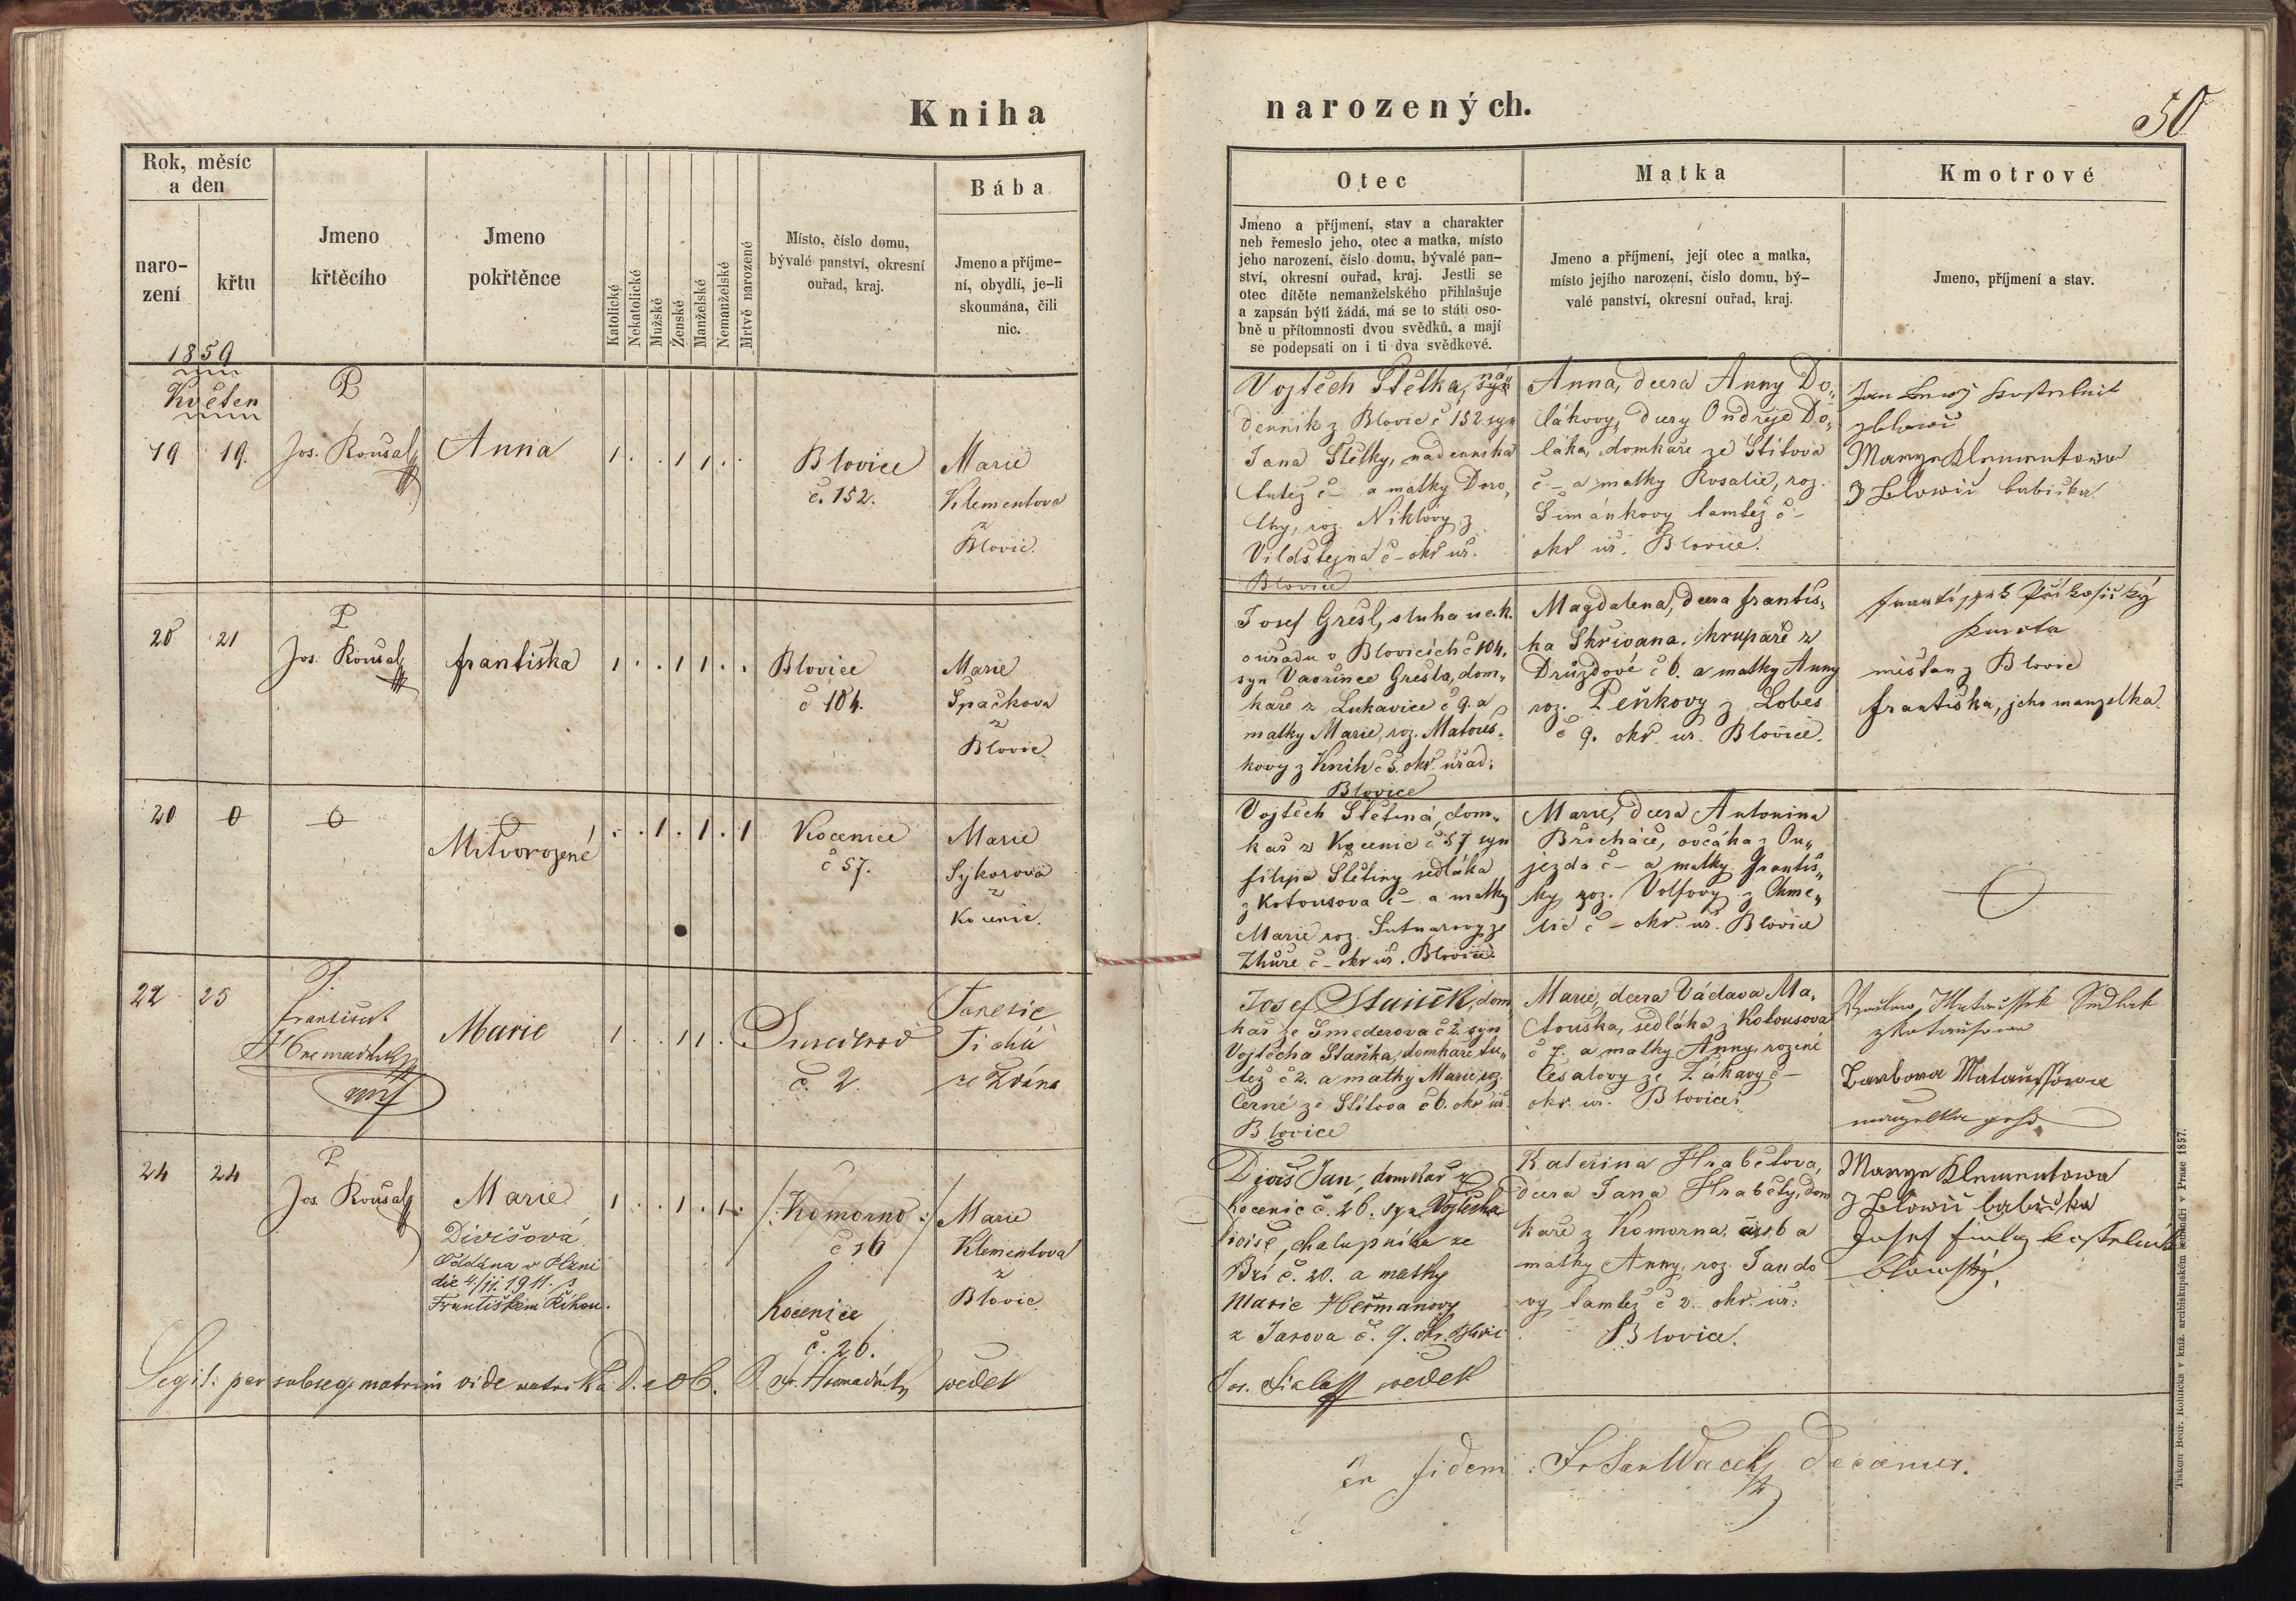 Kniha
narozených.
50
Rok, měsíc
a den
naro-
zení
křtu
Jmeno
křtěcího
Jmeno
pokřtěnce
Katolické
Nekatolické
Mužské
Ženské
Manželské
Nemanželské
Mrtvě narozené
Místo, číslo domu,
bývalé panství, okresní
ouřad, kraj.
Bába
Jmeno a příjme-
ní, obydlí, je-li
skoumána, čili
nic.
Otec
Jmeno a příjmení, stav a charakter
neb řemeslo jeho, otec a matka, místo
jeho narození, číslo domu, bývalé pan-
ství, okresní ouřad, kraj. Jestli se
otec dítěte nemanželského přihlašuje
a zapsán býti žádá, má se to státi oso-
bně u přítomnosti dvou svědků, a mají
se podepsati on i ti dva svědkové.
Matka
Jmeno a příjmení, její otec a matka,
místo jejího narození, číslo domu, bý-
valé panství, okresní ouřad, kraj.
Kmotrové
Jmeno, příjmení a stav.
1859
Květen
19 19.
P
Jos. Roušal
Anna
1 . . 1 1 . .
Blovice
č. 152.
Marie
Klementova
z
Blovic.
Vojtěch Štětka, ná-
denník z Blovic č 152 syn
Jana Štětky, nádenníka
tutéž č – a matky Doro-
thy, roz. Niklovy z
Vildštejna č – okr úř.
Blovice
Anna, dcera Anny Do-
lákovy, dcery Ondřeje Do-
láka, domkáře ze Štítova
č – a matky Rosalie, roz.
Šimánkovy tamtéž č –
okr úř. Blovice.
Jan
Marye Klementowa
z Blowic babička
20 21
P
Jos. Roušal
františka
1 . . 1 1 . .
Blovice
č 104.
Marie
Špačkova
z
Blovic
Josef Grešl, sluha u c.k.
ouřadu v Blovicích č 104.
syn Vavřince Grešla, dom-
káře z Lukavice č 9. a
matky Marie, roz. Matouš-
kovy z Knih č 5. okr. úřad:
Blovice
Magdalena, dcera františ-
ka Skřivana, krupaře z
Drůzdové č 6. a matky Anny
roz. Peňkovy z Lobes
č 9. okr. úr. Blovice.
František Příkosický
měšťan z Blovic
františka, jeho manzelka.
20 0 0
Mrtvorozené
. . 1 . 1 . 1
Kocenice
č 57.
Marie
Sýkorova
z
Kocenic.
Vojtěch Štětina, dom-
kář z Kocenic č 57 syn
filipa Štětiny sedláka
z Kotousova č – a matky
Marie roz. Sutnarovy ze
Zhůře č – okr úř. Blovice
Marie, dcera Antonina
Břicháče, ovčáka z Ou-
jezda č – a matky františ-
ky roz. Volfovy z Chme-
lic č – okr. úř. Blovice
22 23
P.
František
Hromádka
Marie
1 . . 1 1 . .
Smederov
č. 2.
Terezie
Tichá
ze Ždíru
Josef Staněk, dom-
kář ze Smederova č 2. syn
Vojtěcha Staňka, domkáře tu-
též č 2. a matky Marie roz.
Černé ze Štítova č 6. okr úř.
Blovice
Marie, dcera Václava Ma-
touška, sedláka z Kotousova
č 7. a matky Anny, rozené
Česalovy ze Žákavy č –
okr. úř. Blovice.
Wáclaw Matauschek Sedlak
z Kotausowa
Barbora Matauschowa
manzelka geho
24 24
P
Jos. Roušal
Marie
Divišová.
Oddána v Plzni
dne 4./11. 1911. s
Františkem Říhou.
1 . . 1 . 1 .
/: Komorno :/
č 16
Kocenice
č. 26.
Marie
Klementova
z
Blovic
Diviš Jan, domkář z
Kocenic č. 26. syn Vojtěcha
Diviše, chalupníka ze
Bzí č. 20. a matky
Marie Heřmanovy
z Jarova č. 9. okr. Blovic
Kateřina Hrabětova,
dcera Jana Hraběty, dom-
káře z Komorna, čís 6 a
matky Anny, roz. Jando-
vy tamtéž č 2. okr. úř:
Blovice.
Marye Klementowa
z Blowic babička
Josef
Legit: per subseq. matrim vide matrika
P. Fr. Hromádka svědek
Jos. Fiala svědek
In fidem: decanus.
Tiskem Bedř. Rohlíčka v kníž. arcibiskupském semináři v Praze 1857.